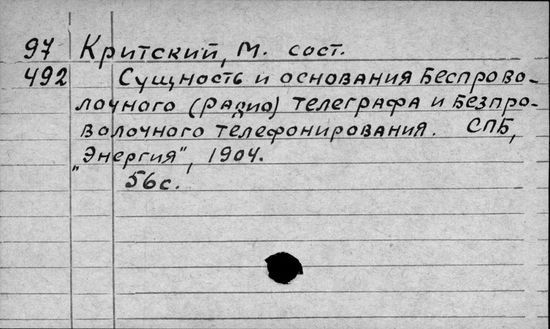 97 Критский, М. сост.
492 Сущность и основания Беспрово-
лочного (радио) телеграфа и Безпро-
волочного телефонирования. СПБ,
„Энергия", 1904.
56с.